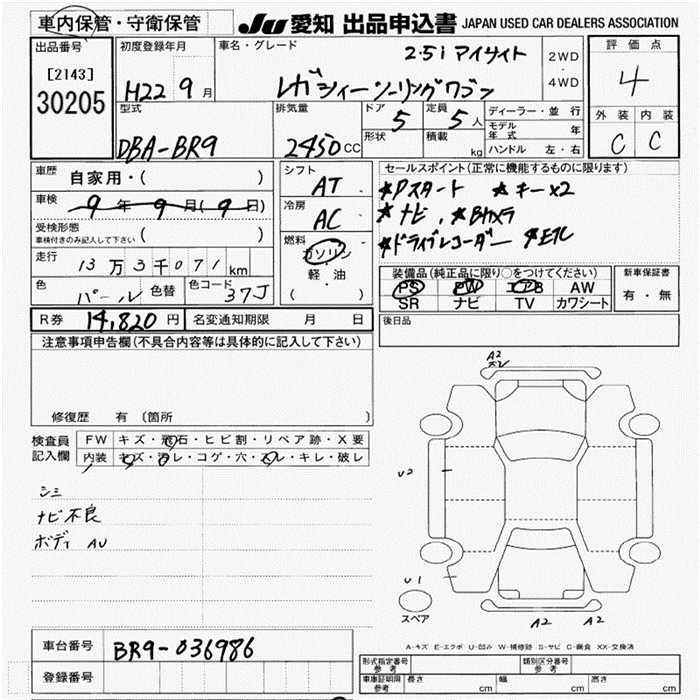 車内保管・守衛保管 JU 愛知 出品申込書 JAPAN USED CAR DEALERS ASSOCIATION
出品番号 [2143] 30205
初度登録年月 H22 9月
車名・グレード 2.5i アイサイト
レガシィーツーリングワゴン
2WD・4WD
評価点 4
外装 内装
C C
型式 DBA-BR9
排気量 2450cc
ドア 5
形状
定員 5人
積載 kg
ディーラー・並行
モデル年式 年
ハンドル 左・右
車歴 自家用・( )
車検 9年9月(9日)
受検形態 車検付きのみ記入して下さい ( )
走行 13万3千071km
色 パール 色替 色コード 37J
シフト AT
冷房 AC
燃料 ガソリン 軽・油 ( )
セールスポイント(正常に機能するものに限ります)
*Pスタート *キー×2
*ナビ、*Bカメラ
*ドライブレコーダー *ETC
装備品(純正品に限り○をつけてください)
PS PW エアB AW
SR ナビ TV カワシート
新車保証書
有・無
R券 14,820円 名変通知期限 月 日
後日品
注意事項申告欄(不具合内容等は具体的に記入して下さい)
修復歴 有(箇所
検査員記入欄
FW キズ・飛石・ヒビ割・リペア跡・X要
内装 キズ・汚レ・コゲ・穴・スレ・キレ・破レ
シミ
ナビ不良
ボディ AU
A2
U2
U1
スペア
A2 A2
A-キズ E-エクボ U-凹み W-補修跡 S-サビ C-腐食 XX-交換済
車台番号 BR9-036986
登録番号
形式指定番号 参考
類別区分番号 参考
車庫証明用 参考 長さ cm 幅 cm 高さ cm